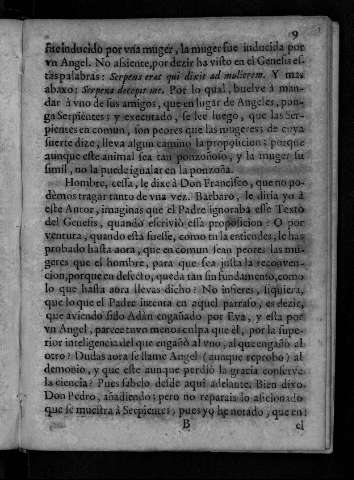 9
fue inducido por vna muger, la muger fue inducida por
vn Angel. No assiente, por dezir ha visto en el Genesis es-
tas palabras: Serpens erat qui dixit ad mulierem. Y mas
abaxo: Serpens decepit me. Por lo qual, buelve à man-
dar à vno de sus amigos, que en lugar de Angeles, pon-
ga Serpientes; y executado, se lee luego, que las Ser-
pientes en comun, son peores que las mugeres; de cuya
suerte dize, lleva algun camino la proposicion: porque
aunque este animal sea tan ponzoñoso, y la muger su
simil, no la puede igualar en la ponzoña.
Hombre, cessa, le dixe à Don Francisco, que no po-
dèmos tragar tanto de vna vez. Barbaro, le diria yo à
este Autor, imaginas que el Padre ignoraba esse Texto
del Genesis, quando escriviò essa proposicion? O por
ventura, quando esta fuesse, como tu la entiendes, le has
probado hasta aora, que en comun sean peores las mu-
geres que el hombre, para que sea justa la reconven-
cion, porque en defecto, queda tan sin fundamento, como
lo que hasta aora llevas dicho? No infieres, siquiera,
que lo que el Padre intenta en aquel parrafo, es dezir,
que aviendo sido Adàn engañado por Eva, y esta por
vn Angel, parece tuvo menos culpa que èl, por la supe-
rior inteligencia del que engañò al vno, al que engañò al
otro? Dudas aora se llame Angel (aunque reprobo) al
demonio, y que este aunque perdiò la gracia conserve
la ciencia? Pues sabelo desde aqui adelante. Bien dixo
Don Pedro, añadiendo; pero no reparais lo aficionado
que se muestra à Serpientes; pues yo he notado, que en
B el